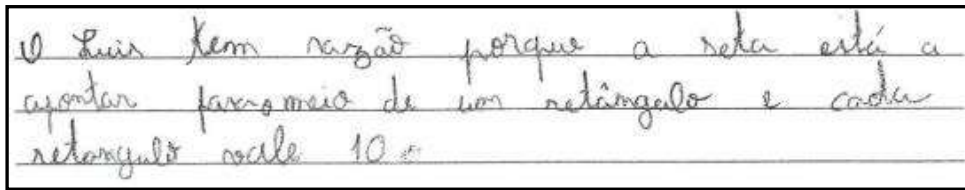 O Luis tem razão porque a seta está a
apontar para o meio de um retângulo e cada
retangulo vale 10